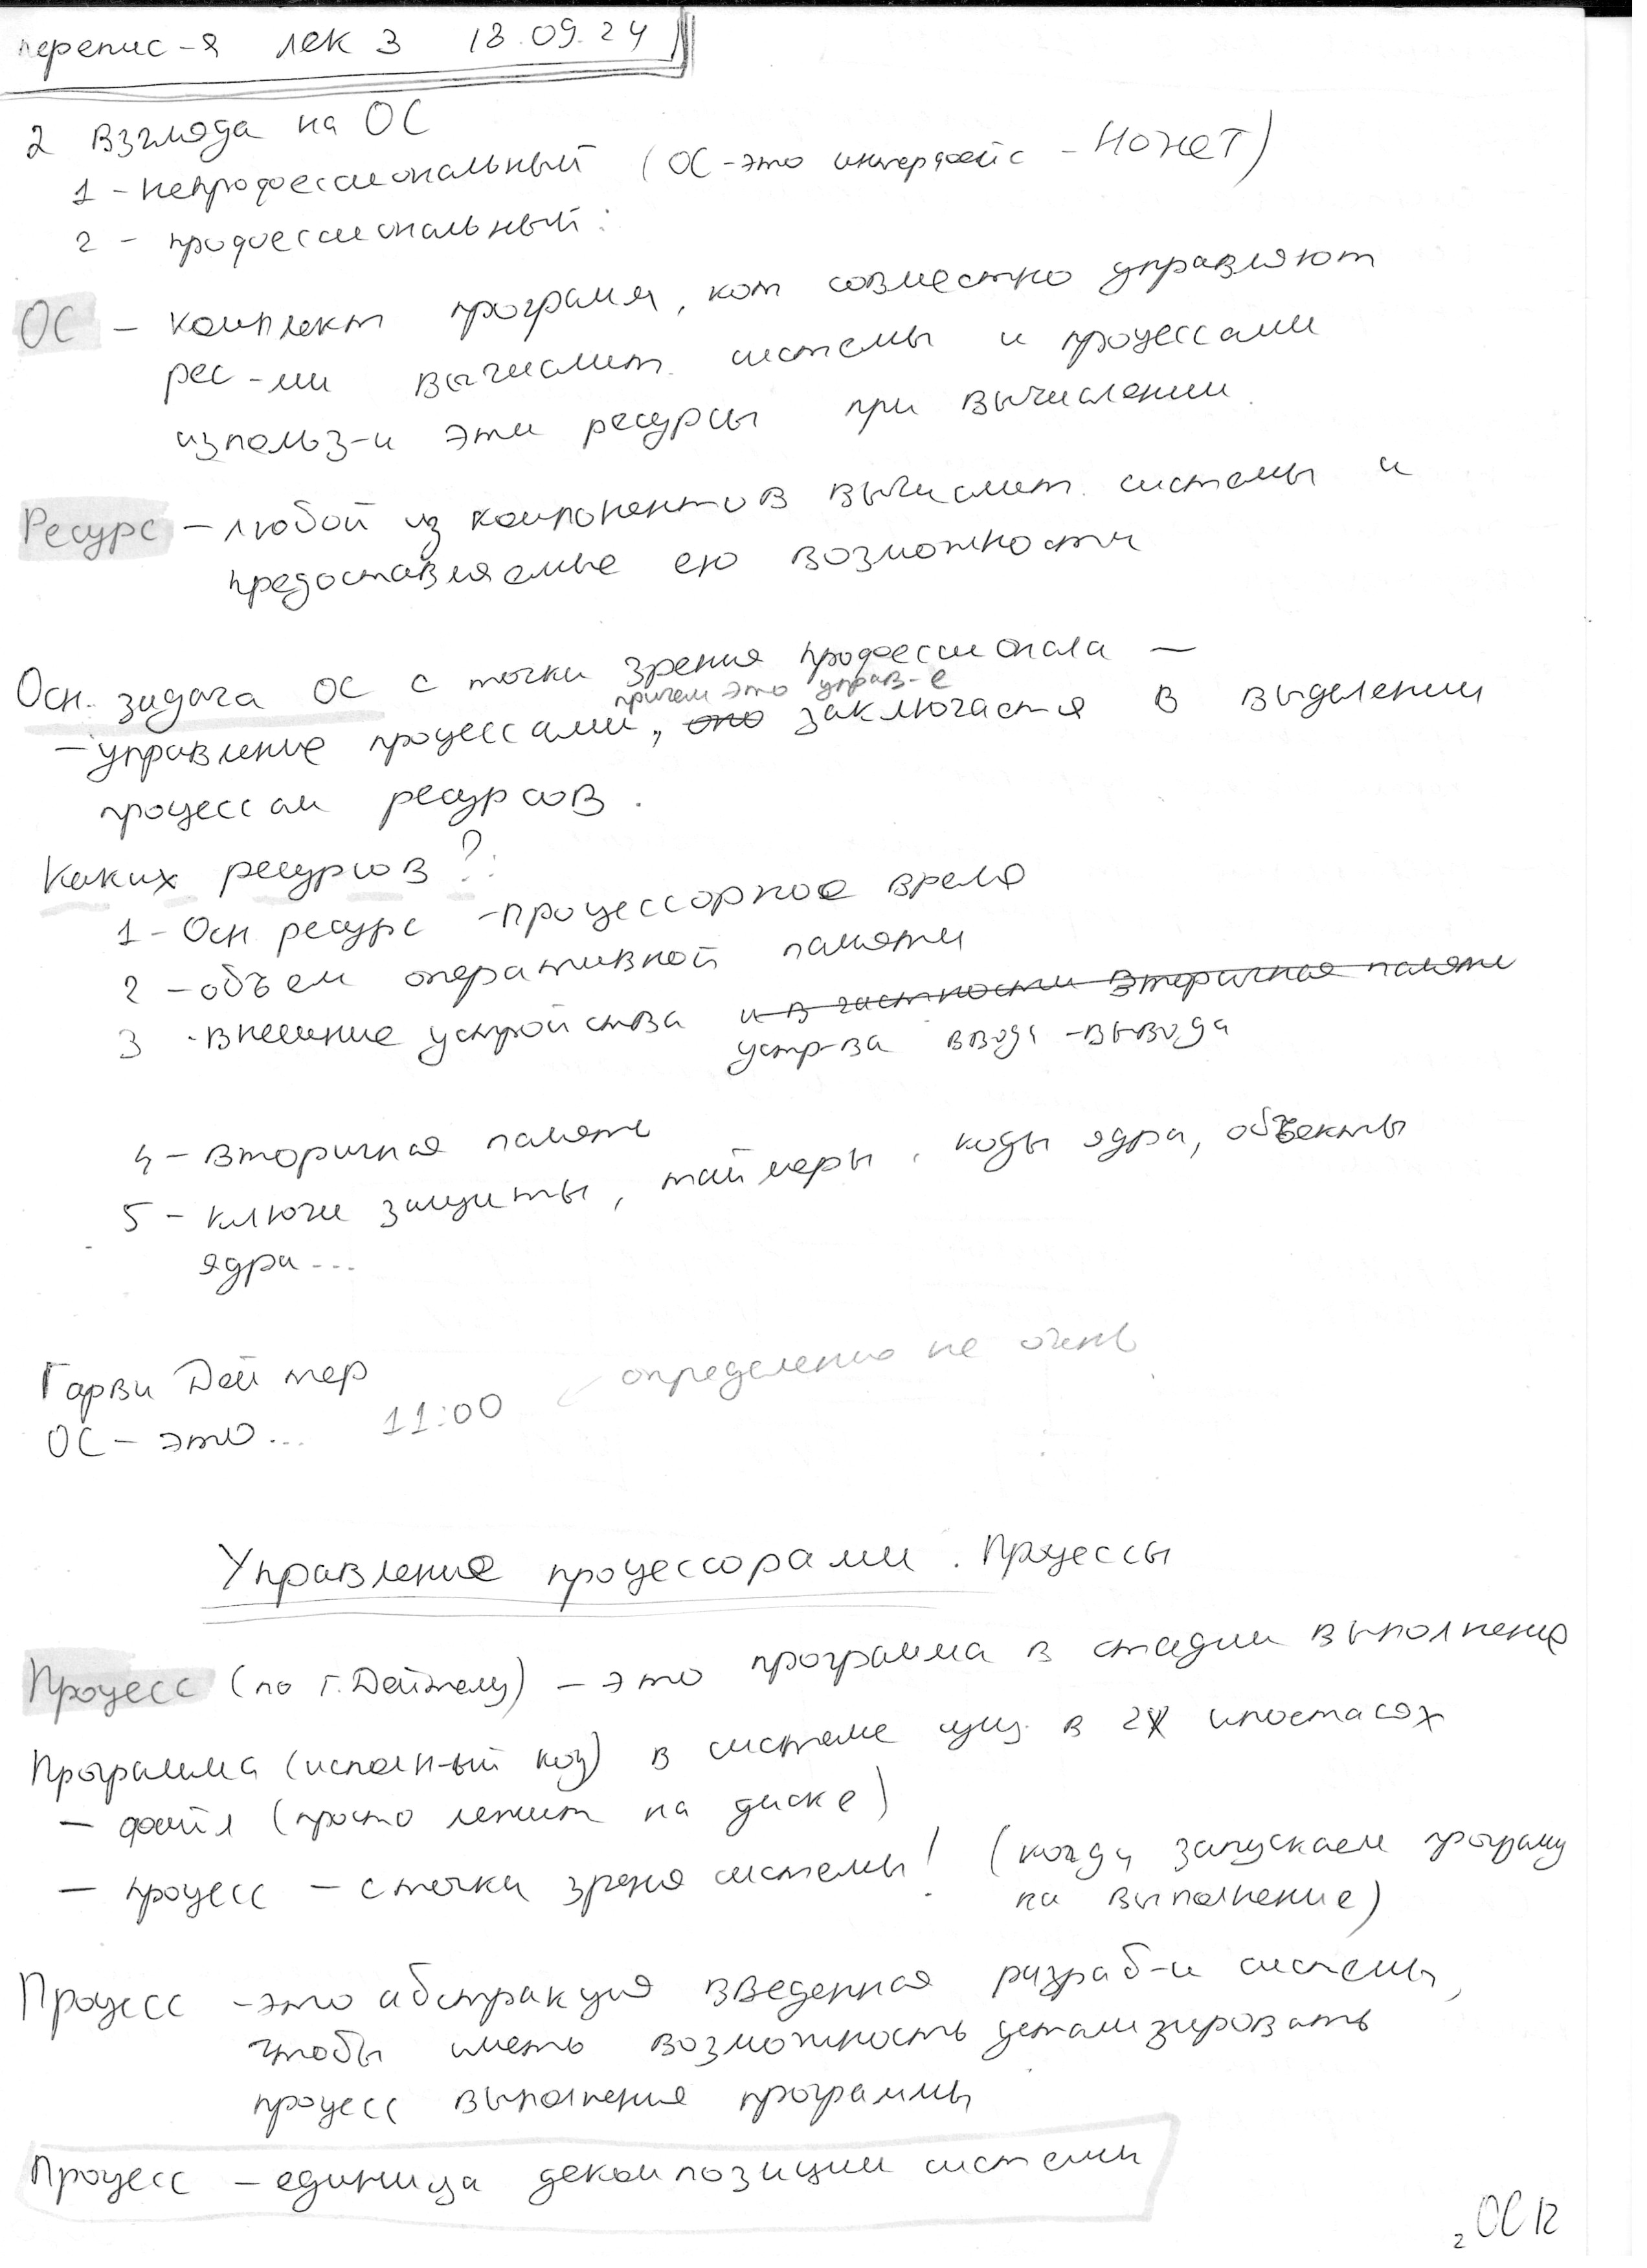 перепис-я лек 3 18.09.24
2 взгляда на ОС
1 - непрофессиональный (ОС - это интерфейс - НОНЕТ)
2 - профессиональный:
ОС - комплект программ, кот совместно управляют
рес-ми вычислит. системы и процессами
использ-и эти ресурсы при вычислении.
Ресурс - любой из компонентов вычислит. системы и
предоставляемые ею возможности
Осн. задача ОС с точки зрения профессионала —
причем это управ-е
- управление процессами, оно заключается в выделении
процессам ресурсов.
Каких ресурсов?:
1 - Осн ресурс - процессорное время
2 - объем оперативной памяти
3 - внешние устройства и в частности вторичная память
устр-ва ввода - вывода
4 - вторичная память
5 - ключи защиты, таймеры, коды ядра, объекты
ядра...
Гарви Дейтер
определение не очень
ОС - это... 11:00
Управление процессорами. Процессы
Процесс (по Г. Дейтелу) - это программа в стадии выполнения
Программа (исполн-ый код) в системе сущ. в 2х ипостасях
- файл (просто лежит на диске)
- процесс - с точки зрения системы! (когда запускаем програму
на выполнение)
Процесс - это абстракция введенная разраб-и системы,
чтобы иметь возможность детализировать
процесс выполнения программы
Процесс - единица декомпозиции системы
2 ОС 12